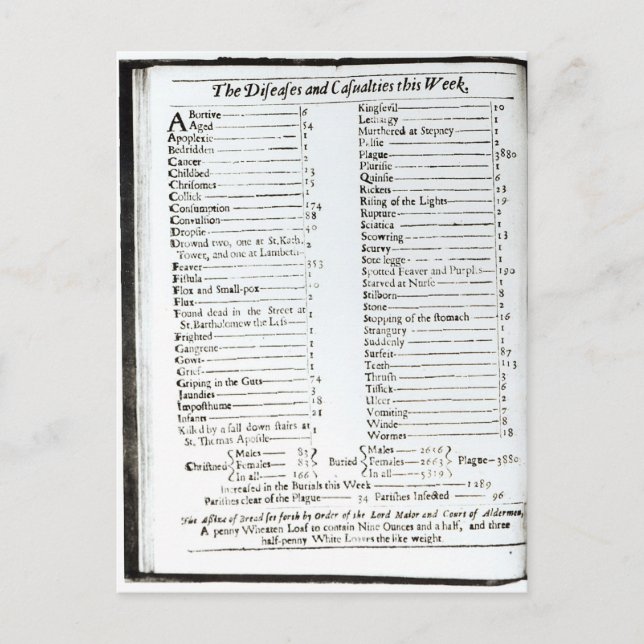 The Diseases and Casualties this Week.
ABortive 6
Aged 54
Apoplexie 1
Bedridden 1
Cancer 2
Childbed 23
Chrisomes 15
Collick 1
Consumption 174
Convulsion 88
Dropsie 40
Drownd two, one at St. Kath. Tower, and one at Lambeth 2
Feaver 353
Fistula 1
Flox and Small-pox 10
Flux 2
Found dead in the Street at St. Bartholomew the Less 1
Frighted 1
Gangrene 1
Gowt 1
Grief 1
Griping in the Guts 74
Jaundies 3
Imposthume 18
Infants 21
Kild by a fall down stairs at St. Thomas Apostle 1
Kingsevil 10
Lethargy 1
Murthered at Stepney 1
Palsie 2
Plague 3880
Plurisie 1
Quinsie 6
Rickets 23
Rising of the Lights 19
Rupture 2
Sciatica 1
Scowring 13
Scurvy 1
Sore legge 1
Spotted Feaver and Purples 190
Starved at Nurse 1
Stilborn 8
Stone 2
Stopping of the stomach 16
Strangury 1
Suddenly 1
Surfeit 87
Teeth 113
Thrush 3
Tissick 6
Ulcer 2
Vomiting 7
Winde 8
Wormes 18
Christned Males 83 Females 83 In all 166
Buried Males 2656 Females 2663 In all 5319 Plague 3880
Increased in the Burials this Week 1289
Parishes clear of the Plague 34 Parishes Infected 96
The Assize of Bread set forth by Order of the Lord Maior and Court of Aldermen,
A penny Wheaten Loaf to contain Nine Ounces and a half, and three
half-penny White Loaves the like weight.